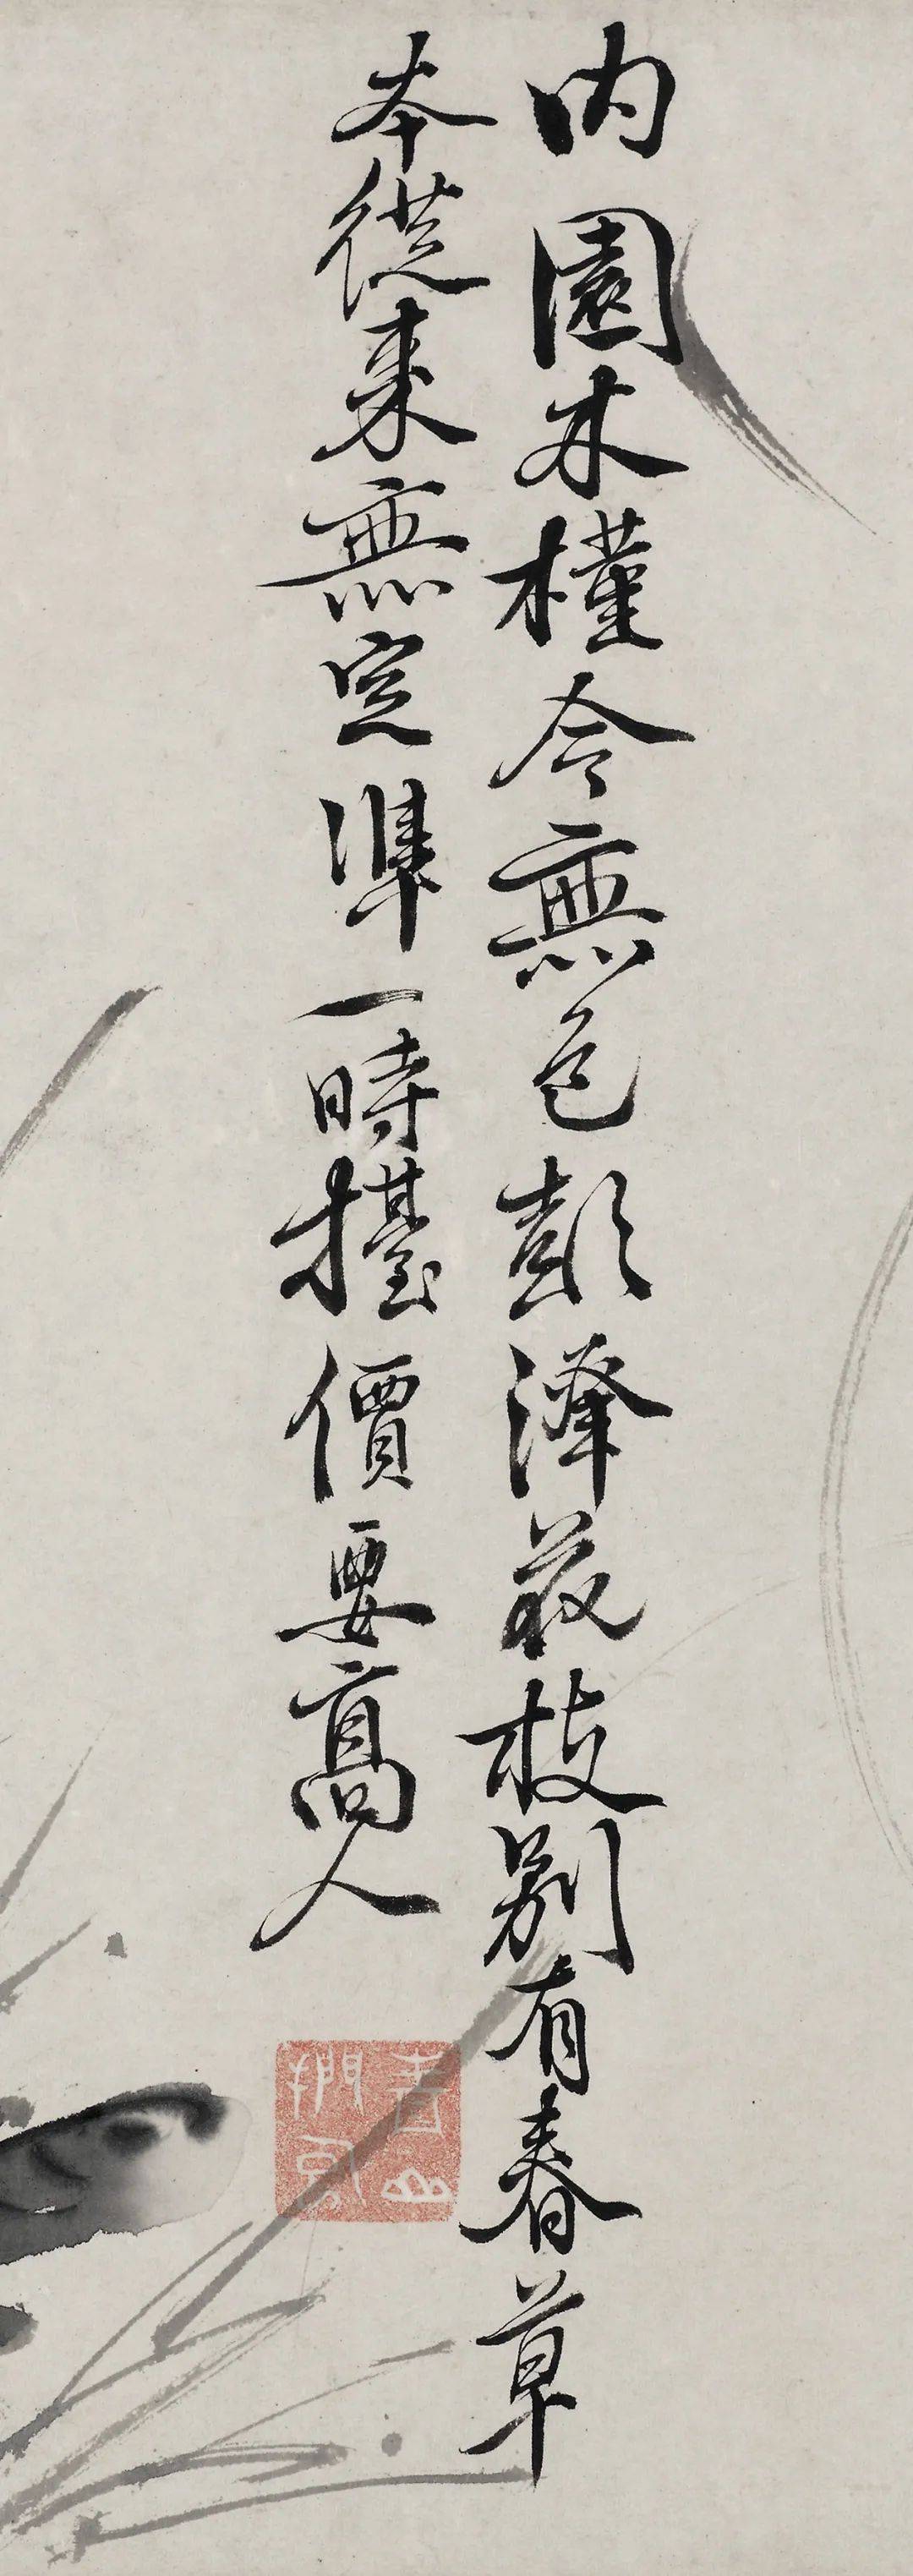 内園木槿今無色彭澤萩枝別有春草
本從來無定準一時擡價要高人
青山捫虱